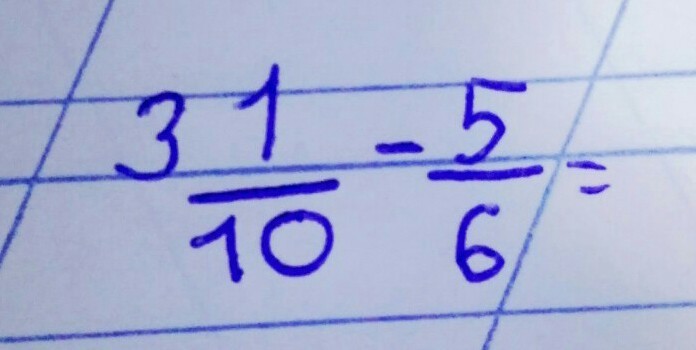 3 1/10 - 5/6 =